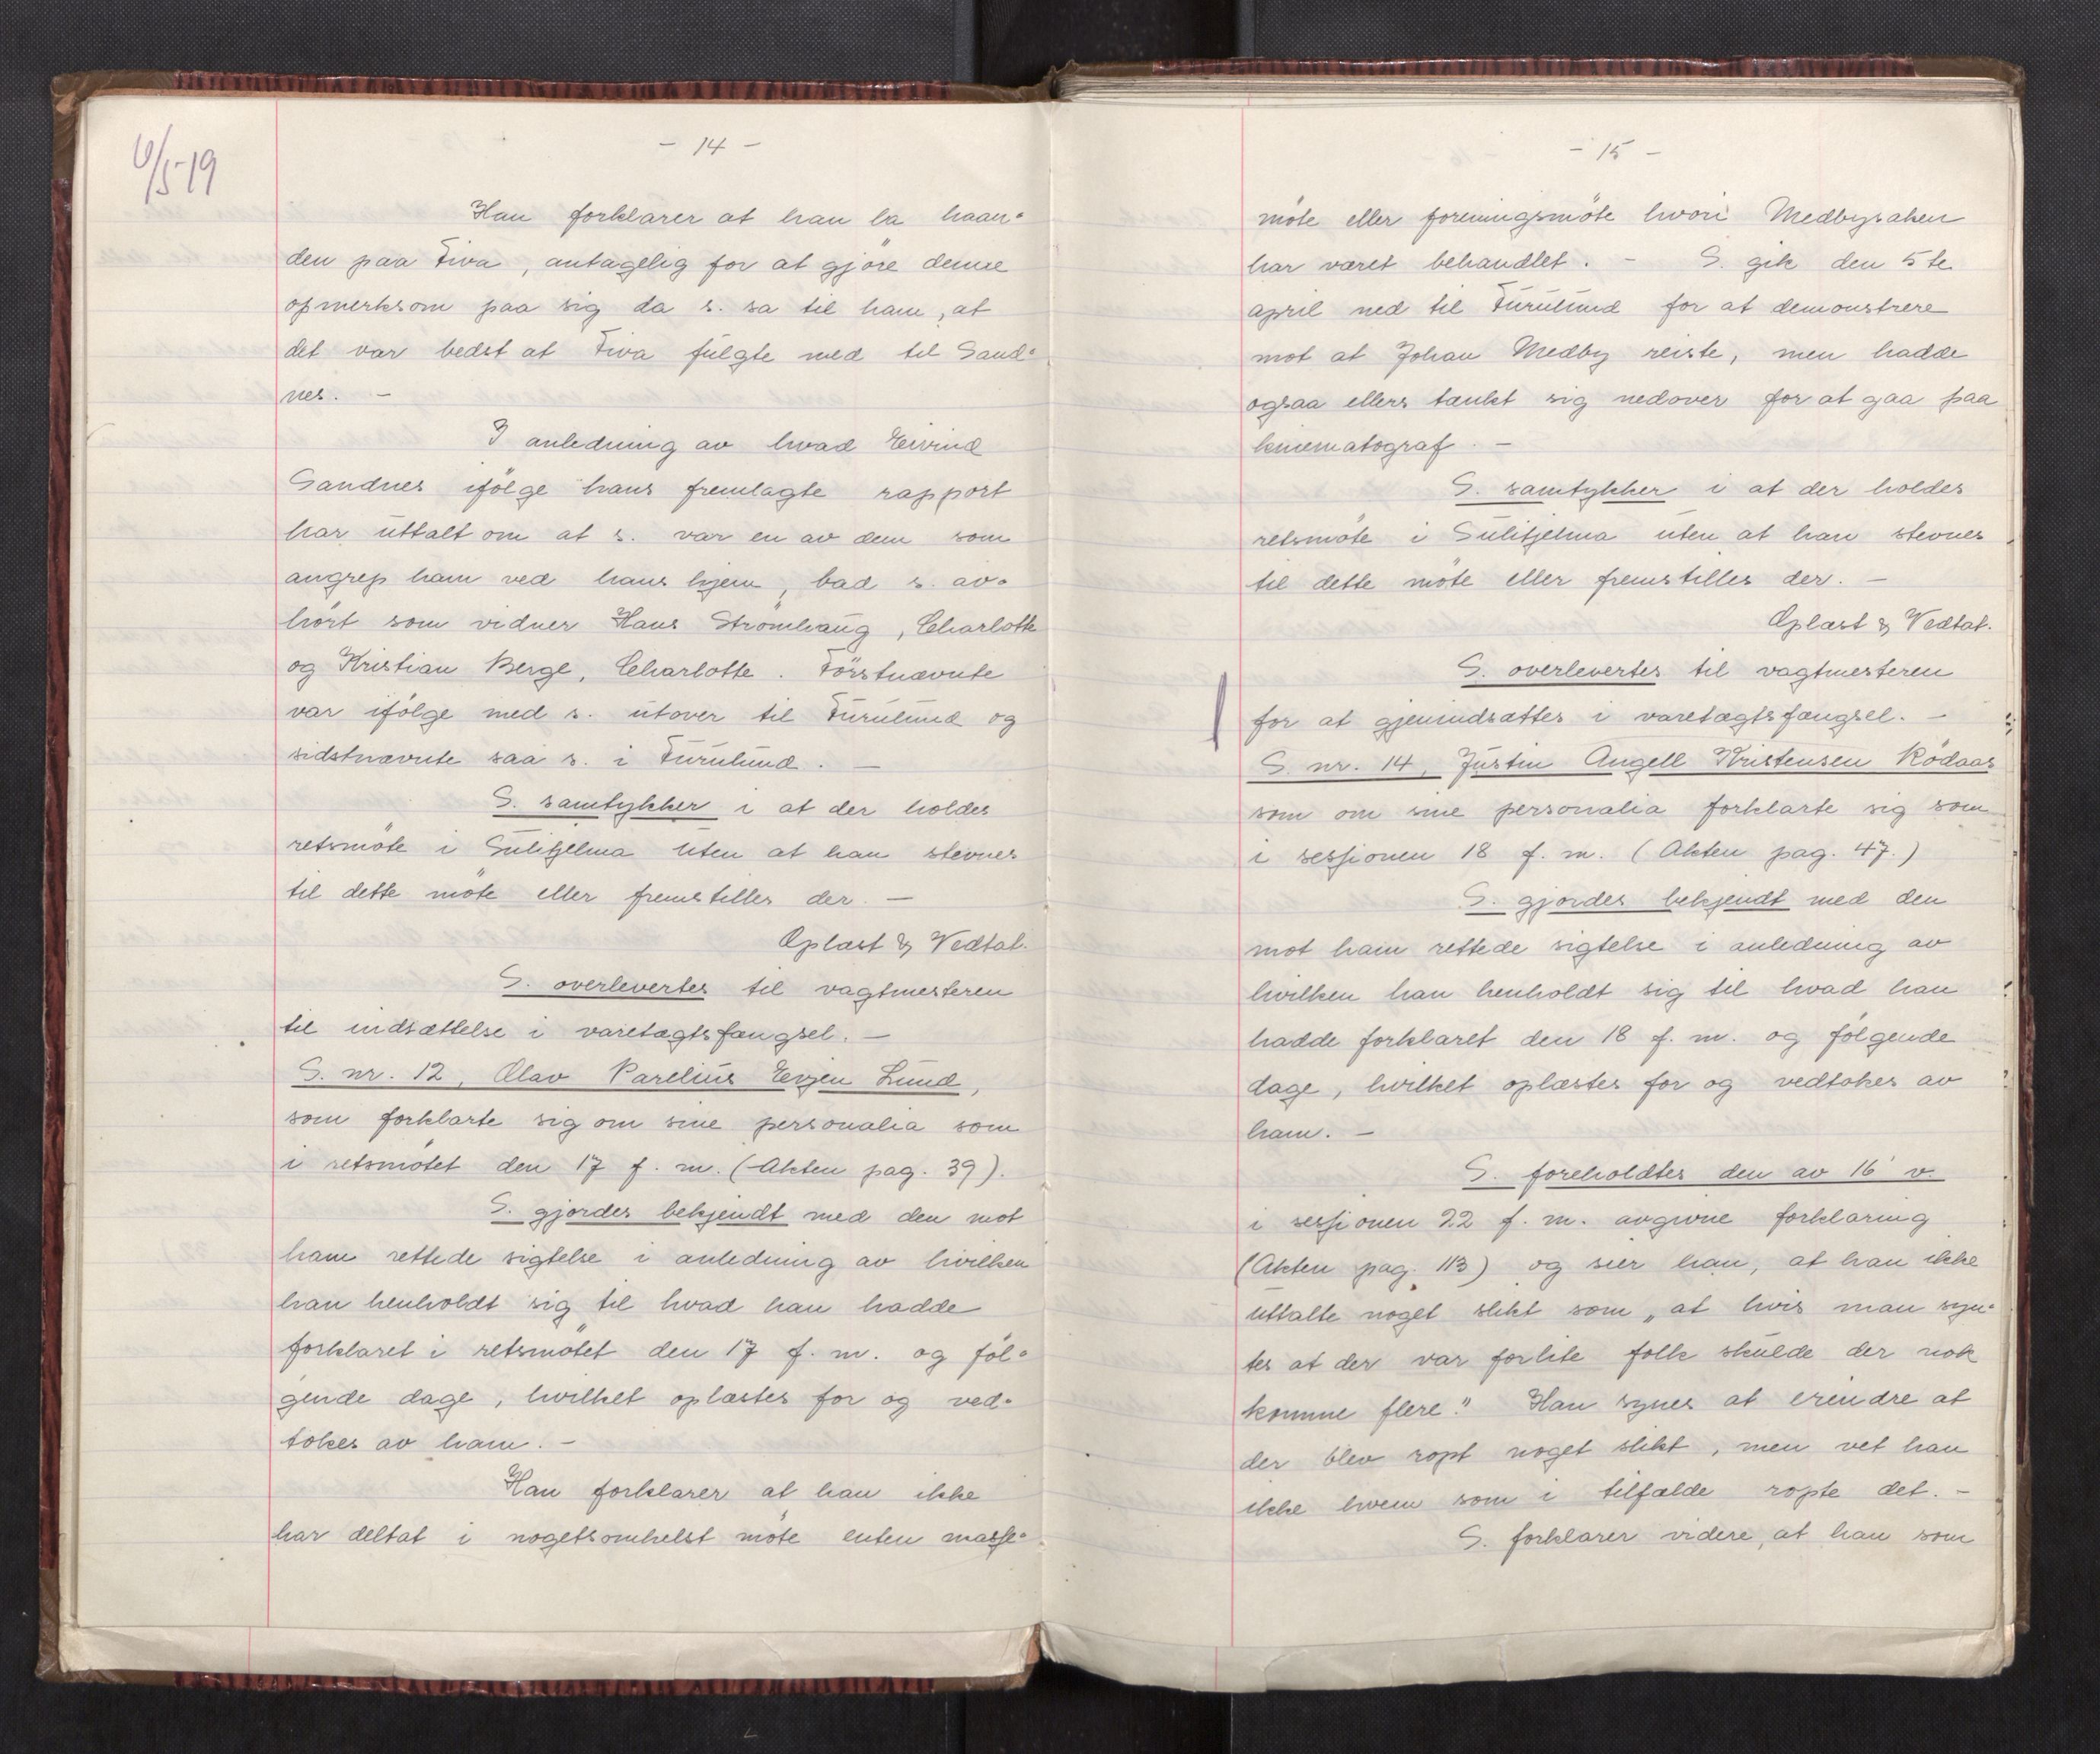 6/5-19
- 14 -
Han forklarer at han la haan-
den paa Fiva, antagelig for at gjøre denne
opmerksom paa sig da s. sa til ham, at
det var bedst at Fiva fulgte med til Sand-
nes. -
I anledning av hvad Eivind
Sandnes ifölge hans fremlagte rapport
har uttalt om at s. var en av dem som
angrep ham ved hans hjem, bad s. av-
hört som vidner Hans Strömhaug, Charlotte
og Kristian Berge, Charlotte. Förstnævnte
var ifölge med s. utover til Furulund og
sidstnævnte saa s. i Furulund. -
S. samtykker i at der holdes
retsmöte i Sulitjelma uten at han stevnes
til dette möte eller fremstilles der. -
Oplæst & Vedtat.
S. overlevertes til vagtmesteren
til indsættelse i varetægtsfængsel. -
S. nr. 12, Olav Parelius Evjen Lund,
som forklarte sig om sine personalia som
i retsmötet den 17 f. m. (Akten pag. 39).
S. gjordes bekjendt med den mot
ham rettede sigtelse i anledning av hvilken
han henholdt sig til hvad han hadde
forklaret i retsmötet den 17 f. m. og föl-
gende dage, hvilket oplæstes for og ved-
tokes av ham. -
Han forklarer at han ikke
har deltat i nogetsomhelst möte enten masse-
- 15 -
möte eller foreningsmöte hvori Medbysaken
har været behandlet. - S. gik den 5te
april ned til Furulund for at demonstrere
mot at Johan Medby reiste, men hadde
ogsaa ellers tænkt sig nedover for at gaa paa
kinematograf. -
S. samtykker i at der holdes
retsmöte i Sulitjelma uten at han stevnes
til dette möte eller fremstilles der. -
Oplæst & Vedtat.
S. overlevertes til vagtmesteren
for at gjenindsættes i varetægtsfængsel. -
S. nr. 14, Justin Angell Kristensen Rödaas
som om sine personalia forklarte sig som
i sessionen 18 f. m. (Akten pag. 47.)
S. gjordes bekjendt med den
mot ham rettede sigtelse i anledning av
hvilken han henholdt sig til hvad han
hadde forklaret den 18 f. m. og følgende
dage, hvilket oplæstes for og vedtokes av
ham. -
S. foreholdtes den av 16' v.
i sessionen 22 f. m. avgivne forklaring
(Akten pag. 113) og sier han, at han ikke
uttalte noget slikt som „at hvis man syn-
tes at der var forlite folk skulde der nok
komme flere." Han synes at erindre at
der blev ropt noget slikt, men vet han
ikke hvem som i tilfælde ropte det. -
S. forklarer videre, at han som